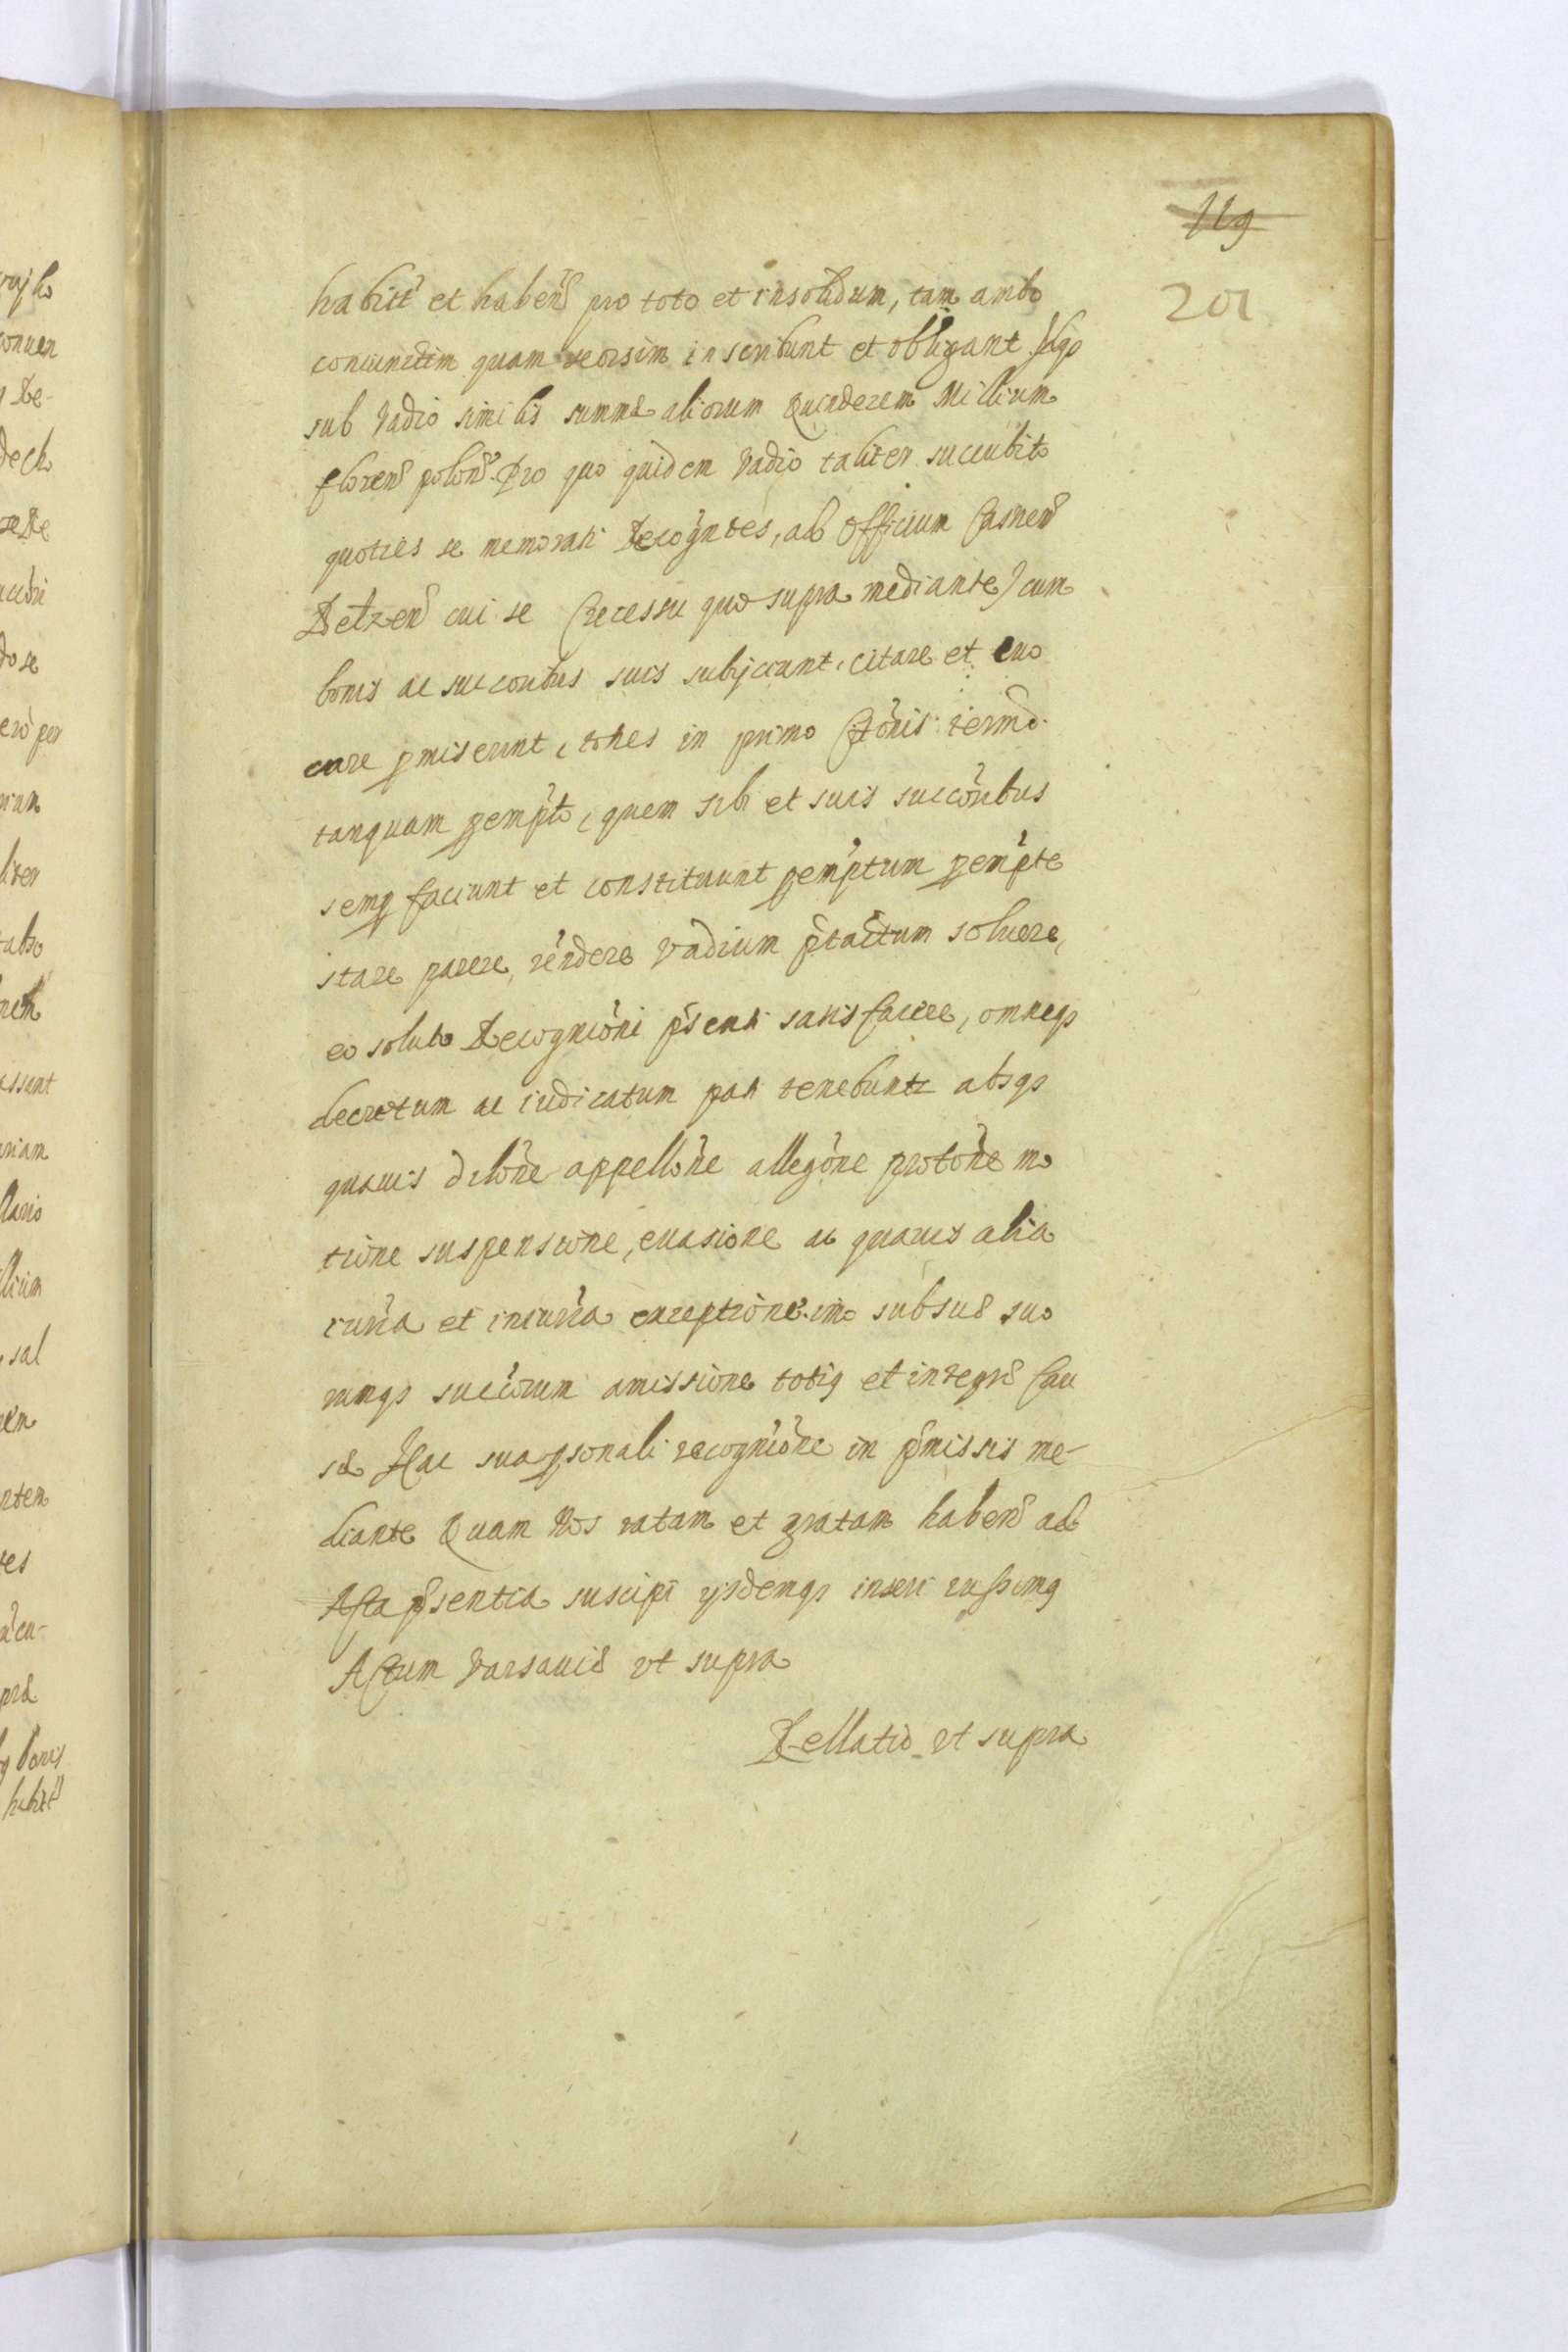 119
201
habitt et haben pro toto et insolidum, tam ambo
coniunctim quam seorsim inscribunt et obligant Idqs
sub vadio similis summæ aliorum Quindecem Millium
floren polon. Pro quo quidem vadio taliter succubito
quoties se memorati Recogntes, ad Officium Castren
Retzen cui se (recessu quo supra mediante) cum
bonis ac succoribus suis subijciunt, citare et euo
care pmiserint, toties in primo Citonis termo
tanquam pempto, quem sibi et suis succoribus
semp faciunt et constituunt pemptum pempte
stare parere, rendere vadium ptactum soluere,
eo soluto Recognicioni psenti satisfacere, omneqs
decretum ac iudicatum pati tenebuntr absqs
quauis dilone appellone allegone protone mo
tione suspensione, euasione ac quauis alia
iuria et iniuria exceptione imo sub suæ suo
rumqs succorum amissione totiq et integræ cau
sæ Hac sua psonali recognicione in pmissis me-
diante Quam Nos ratam et gratam haben ad
Acta psentia suscipi ysdemqs inseri iussimq
Actum Varsauiæ vt supra
Rellatio vt supra